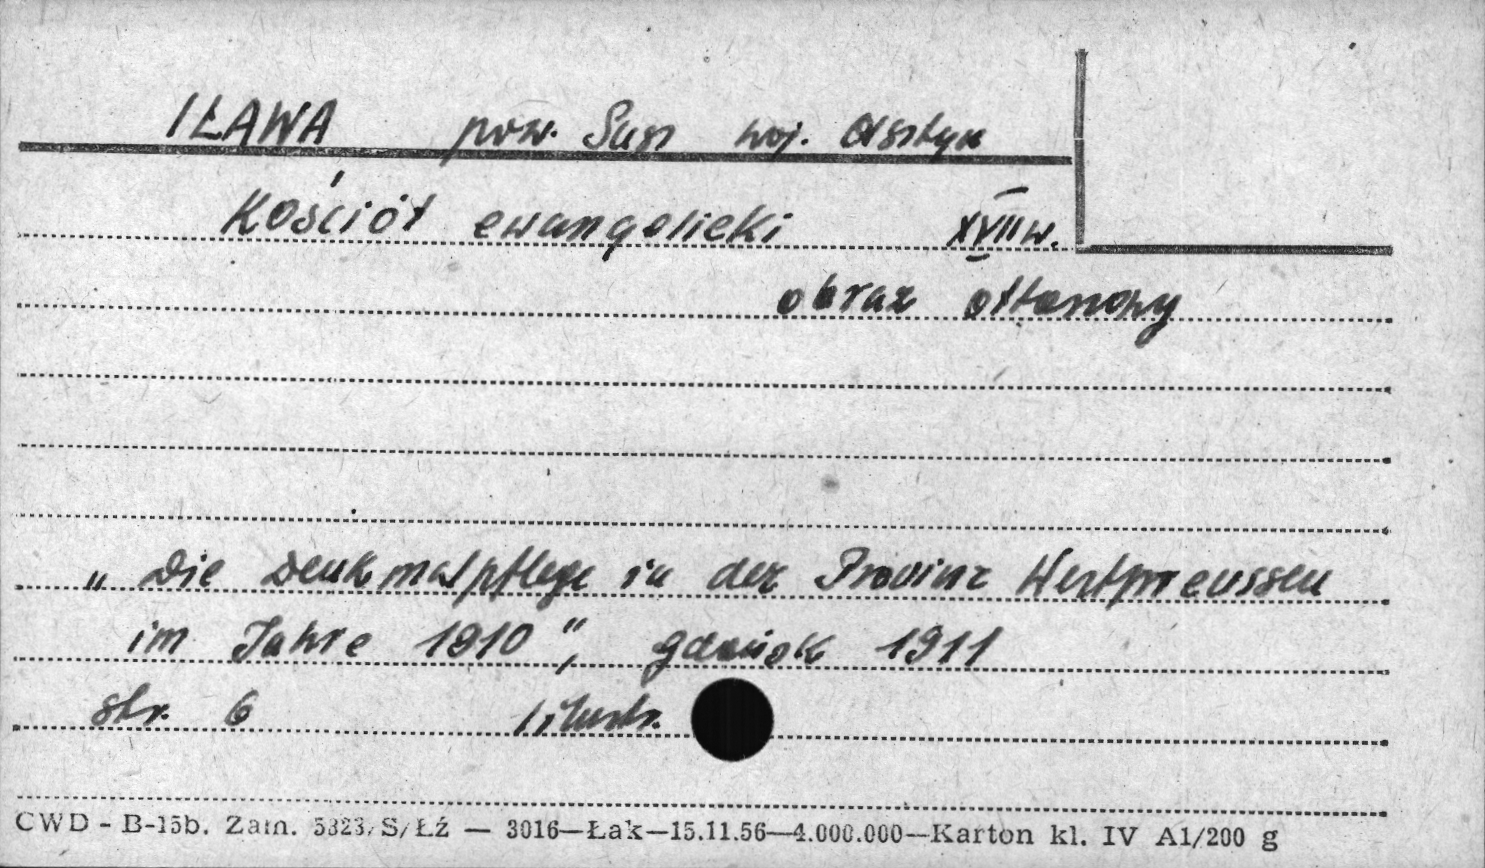 IŁAWA pow. Susz woj. Olsztyn
Kościół ewangelicki XVII w.
obraz ołtarzowy
"Die Denkmalpflege in der Provinz Westpreussen
im Jahre 1910", Gdańsk 1911
str. 6 1 ilustr.
CWD - B-15b. Zam. 5323/S/Łź — 3016—Łak—15.11.56—4.000.000—Karton kl. IV A1/200 g